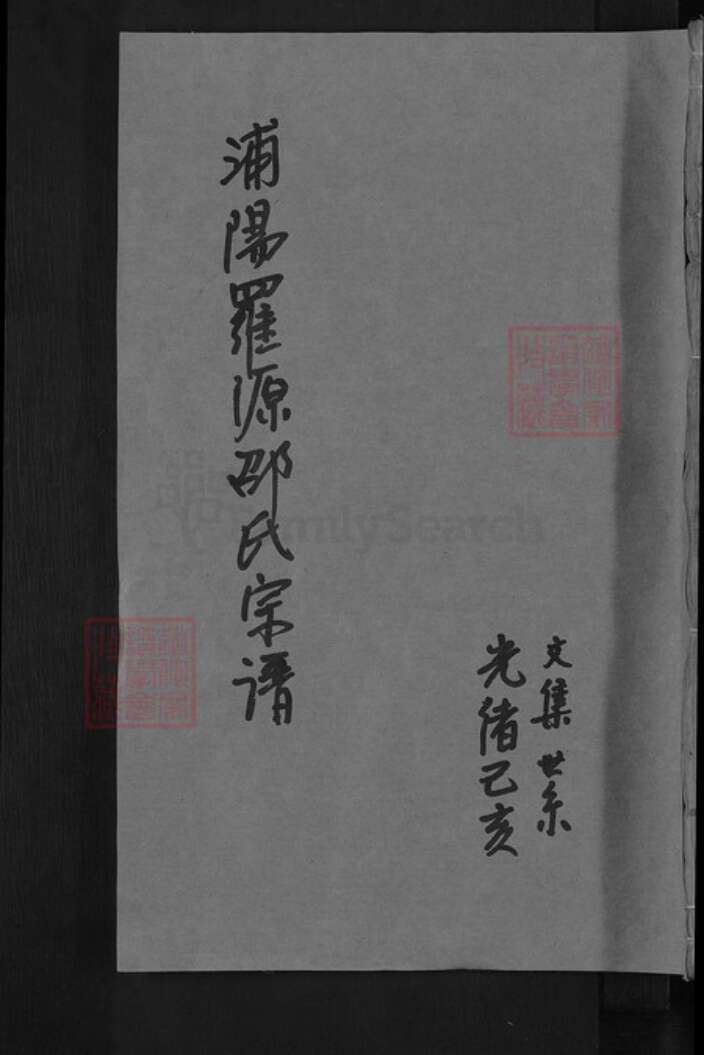 浦陽羅源邵氏宗譜
文集 世系
光绪己亥
FamilySearch